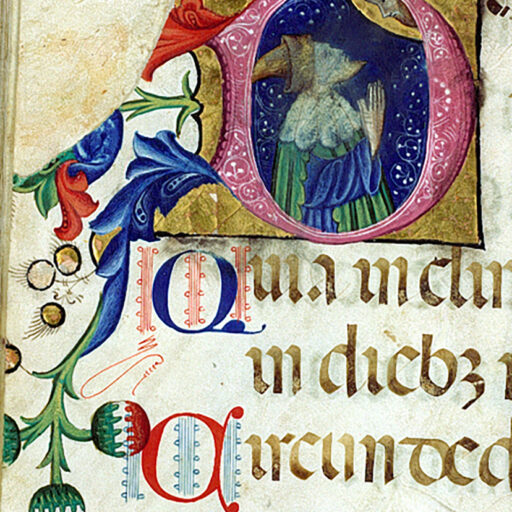 Quia inclin
in diebꝫ
Circunded